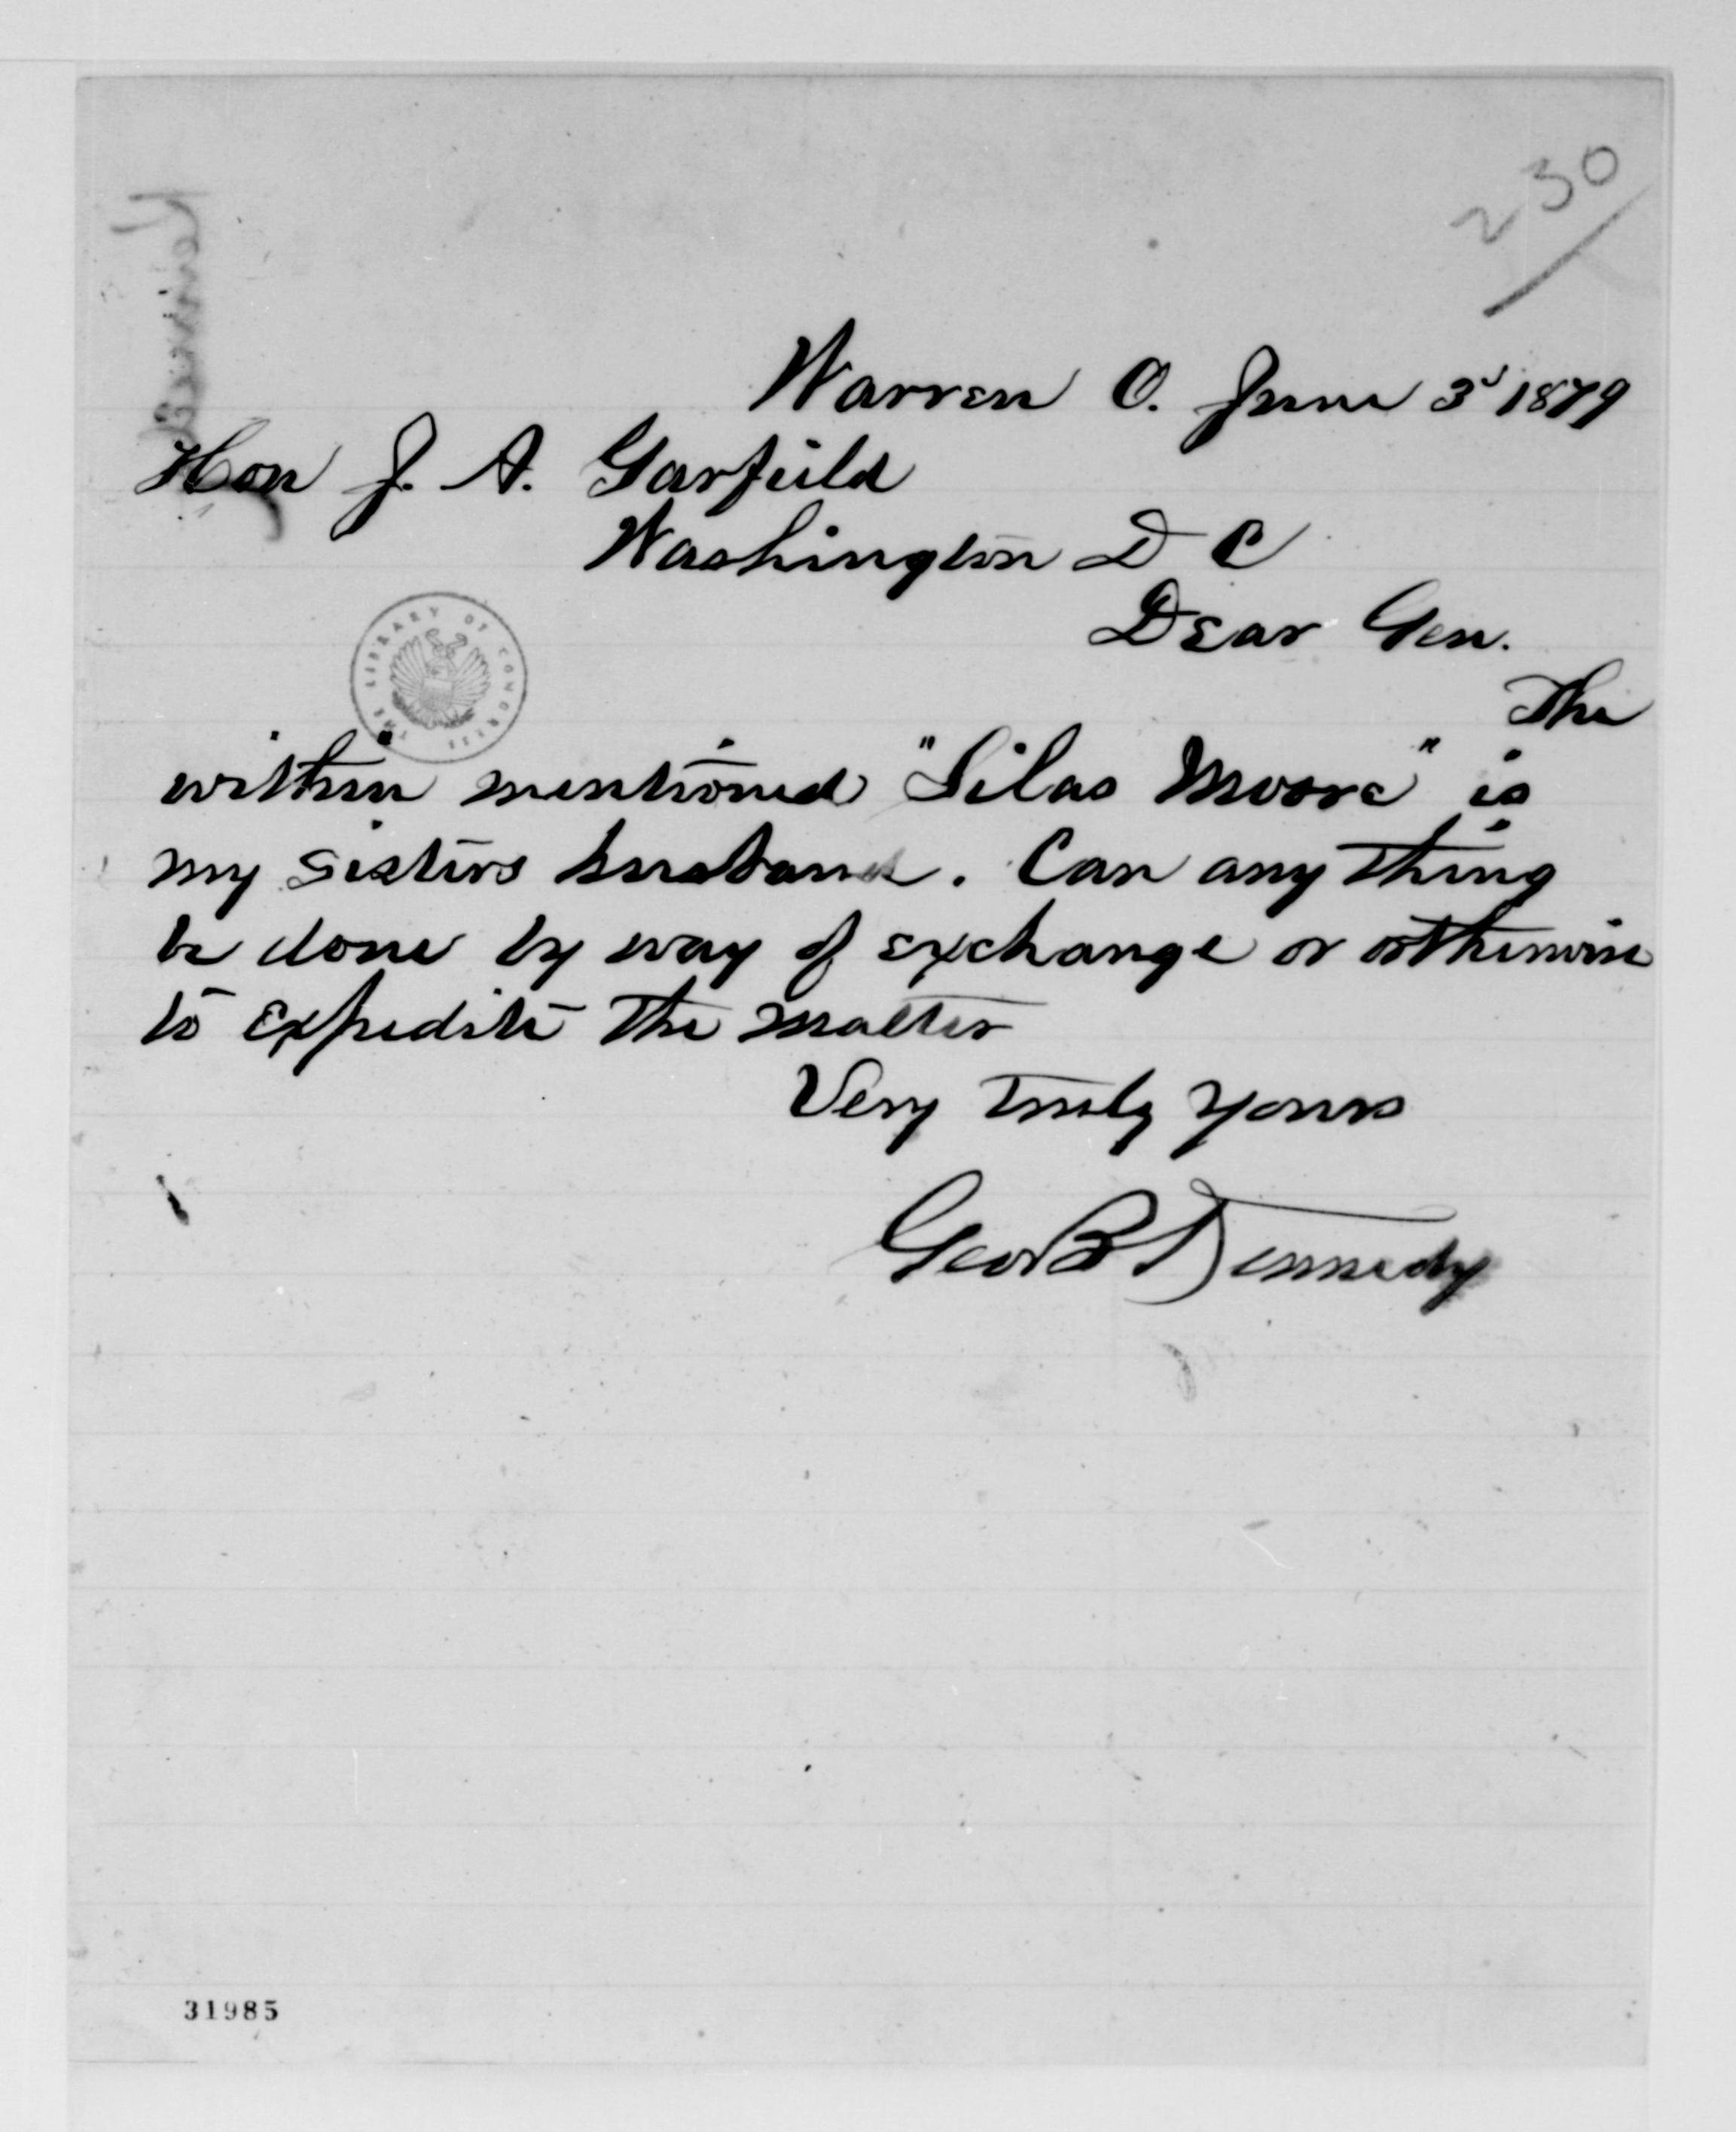 230
Warren O. June 3d 1879
Hon J. A. Garfield
Washington D C
Dear Gen.
The
within mentioned "Silas Moore" is
my sisters husband. Can any thing
be done by way of exchange or otherwise
to expedite the matter
Very truly yours
Geo B Kennedy
THE LIBRARY OF CONGRESS
31985